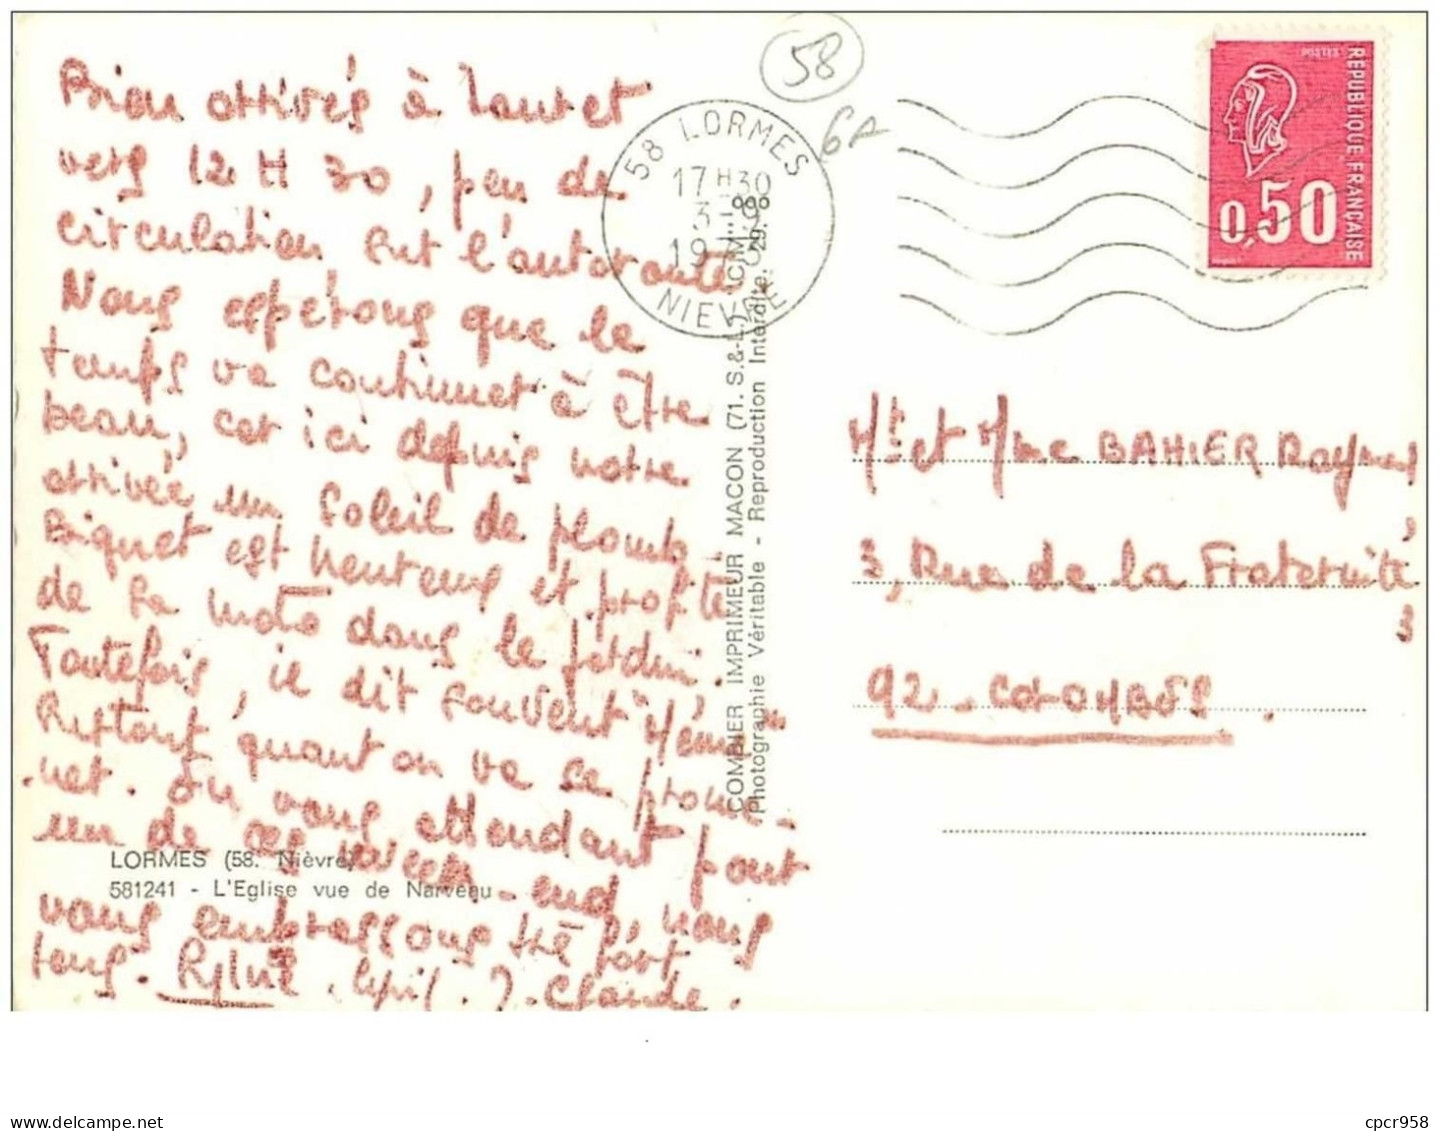 Bien arrivés à
vers 12 H 30, peu de
circulation sur l'autoroute.
Nous espérons que le
temps va continuer à être
beau, car ici depuis notre
arrivée un soleil de plomb.
est heureux et profite
de sa moto dans le jardin.
Toutefois, il dit souvent
quant on va se prome-
ner. En vous attendant pour
un de ces week-end, nous
vous embrassons très fort
tous. Cyril. J. Claude.
LORMES (58. Nièvre)
581241 - L'Eglise vue de Narveau
COMBIER IMPRIMEUR MACON (71. S.&-L.) CIM
Photographie Véritable - Reproduction Interdite. 29.
58
6A
58 LORMES
17H30
3-9
1973
NIEVRE
POSTES
REPUBLIQUE FRANÇAISE
0,50
Mr et Mme BAHIER Raymond
3, Rue de la Fraternité
3
92 - COLOMBES.
cpcr958